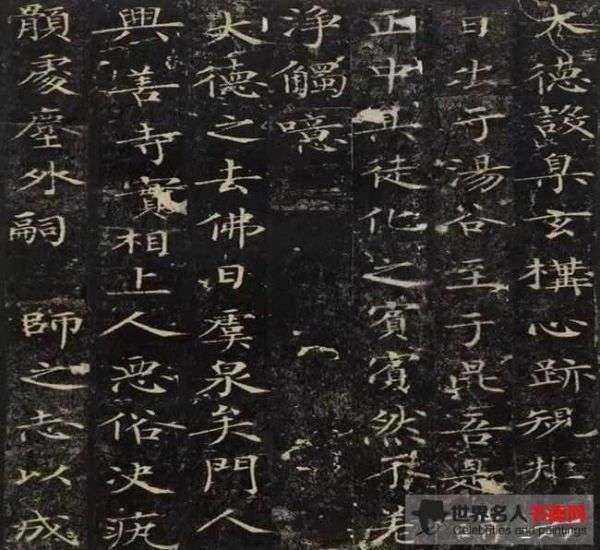 大德設臬玄構心跡規矩
日出于湯谷至于昆吾是
正中其徒化之賓賓然不差
淨觸噫
大德之去佛日虞泉矣門人
興善寺實相上人惡俗決疣
處塵外嗣 師之志以成
世界名人书画网
Celebrities and paintings